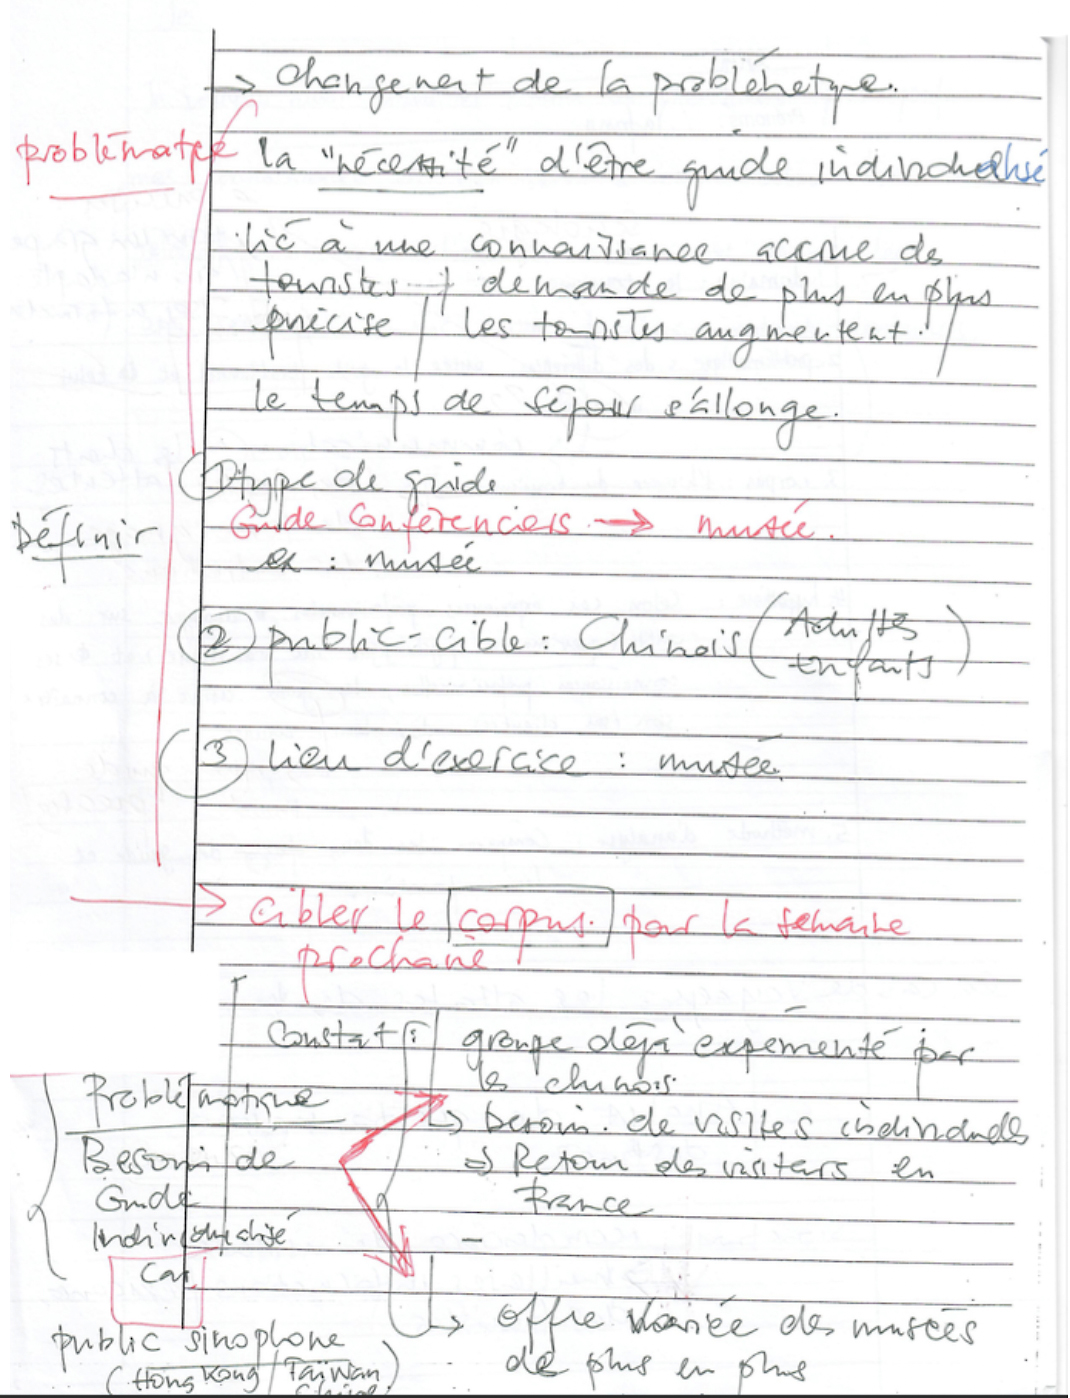 → changement de la problématique.
problématique
la "nécessité" d'être guide individualisé
lié à une connaissance accrue des
touristes → demande de plus en plus
précise / les touristes augmentent. /
le temps de séjour s'allonge.
Définir
① type de guide
Guide Conférenciers → musée.
ex : musée
② public-cible : Chinois (Adultes
Enfants)
③ lieu d'exercice : musée
→ Cibler le corpus. pour la semaine
prochaine
Constat : groupe déjà expérimenté par
les chinois
↳ besoin de visites individuelles
⇒ Retour des visiteurs en
France
–
↳ offre variée des musées
de plus en plus
Problématique
Besoin de
Guide
Individualisé
car
public sinophone
(Hong Kong / Taïwan
Chine)